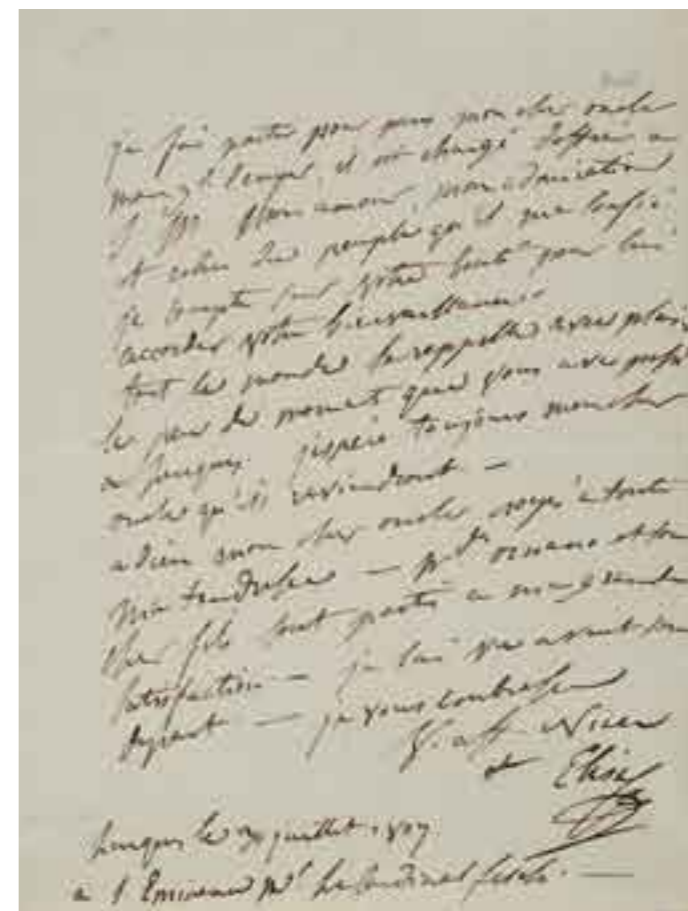 je fais partir pour mon cher oncle
il est chargé d'offrir a
mon amour, mon admiration
et celui du peuple qu'il me confie
je compte sur votre bonté pour lui
accorder votre bienveillance
tout le monde se rappelle avec plaisir
le peu de moment que vous avez passé
a Lucques. j'espère toujours mon cher
oncle qu'ils reviendront —
adieu mon cher oncle croyez a toute
ma tendresse — Md ornano et son
cher fils sont partis a ma grande
satisfaction — je l'ai vu avant son
départ — je vous embrasse
V. aff Niece
Elisa
Lucques le 30 juillet 1807
a S Eminence Mr le Cardinal fesch. —